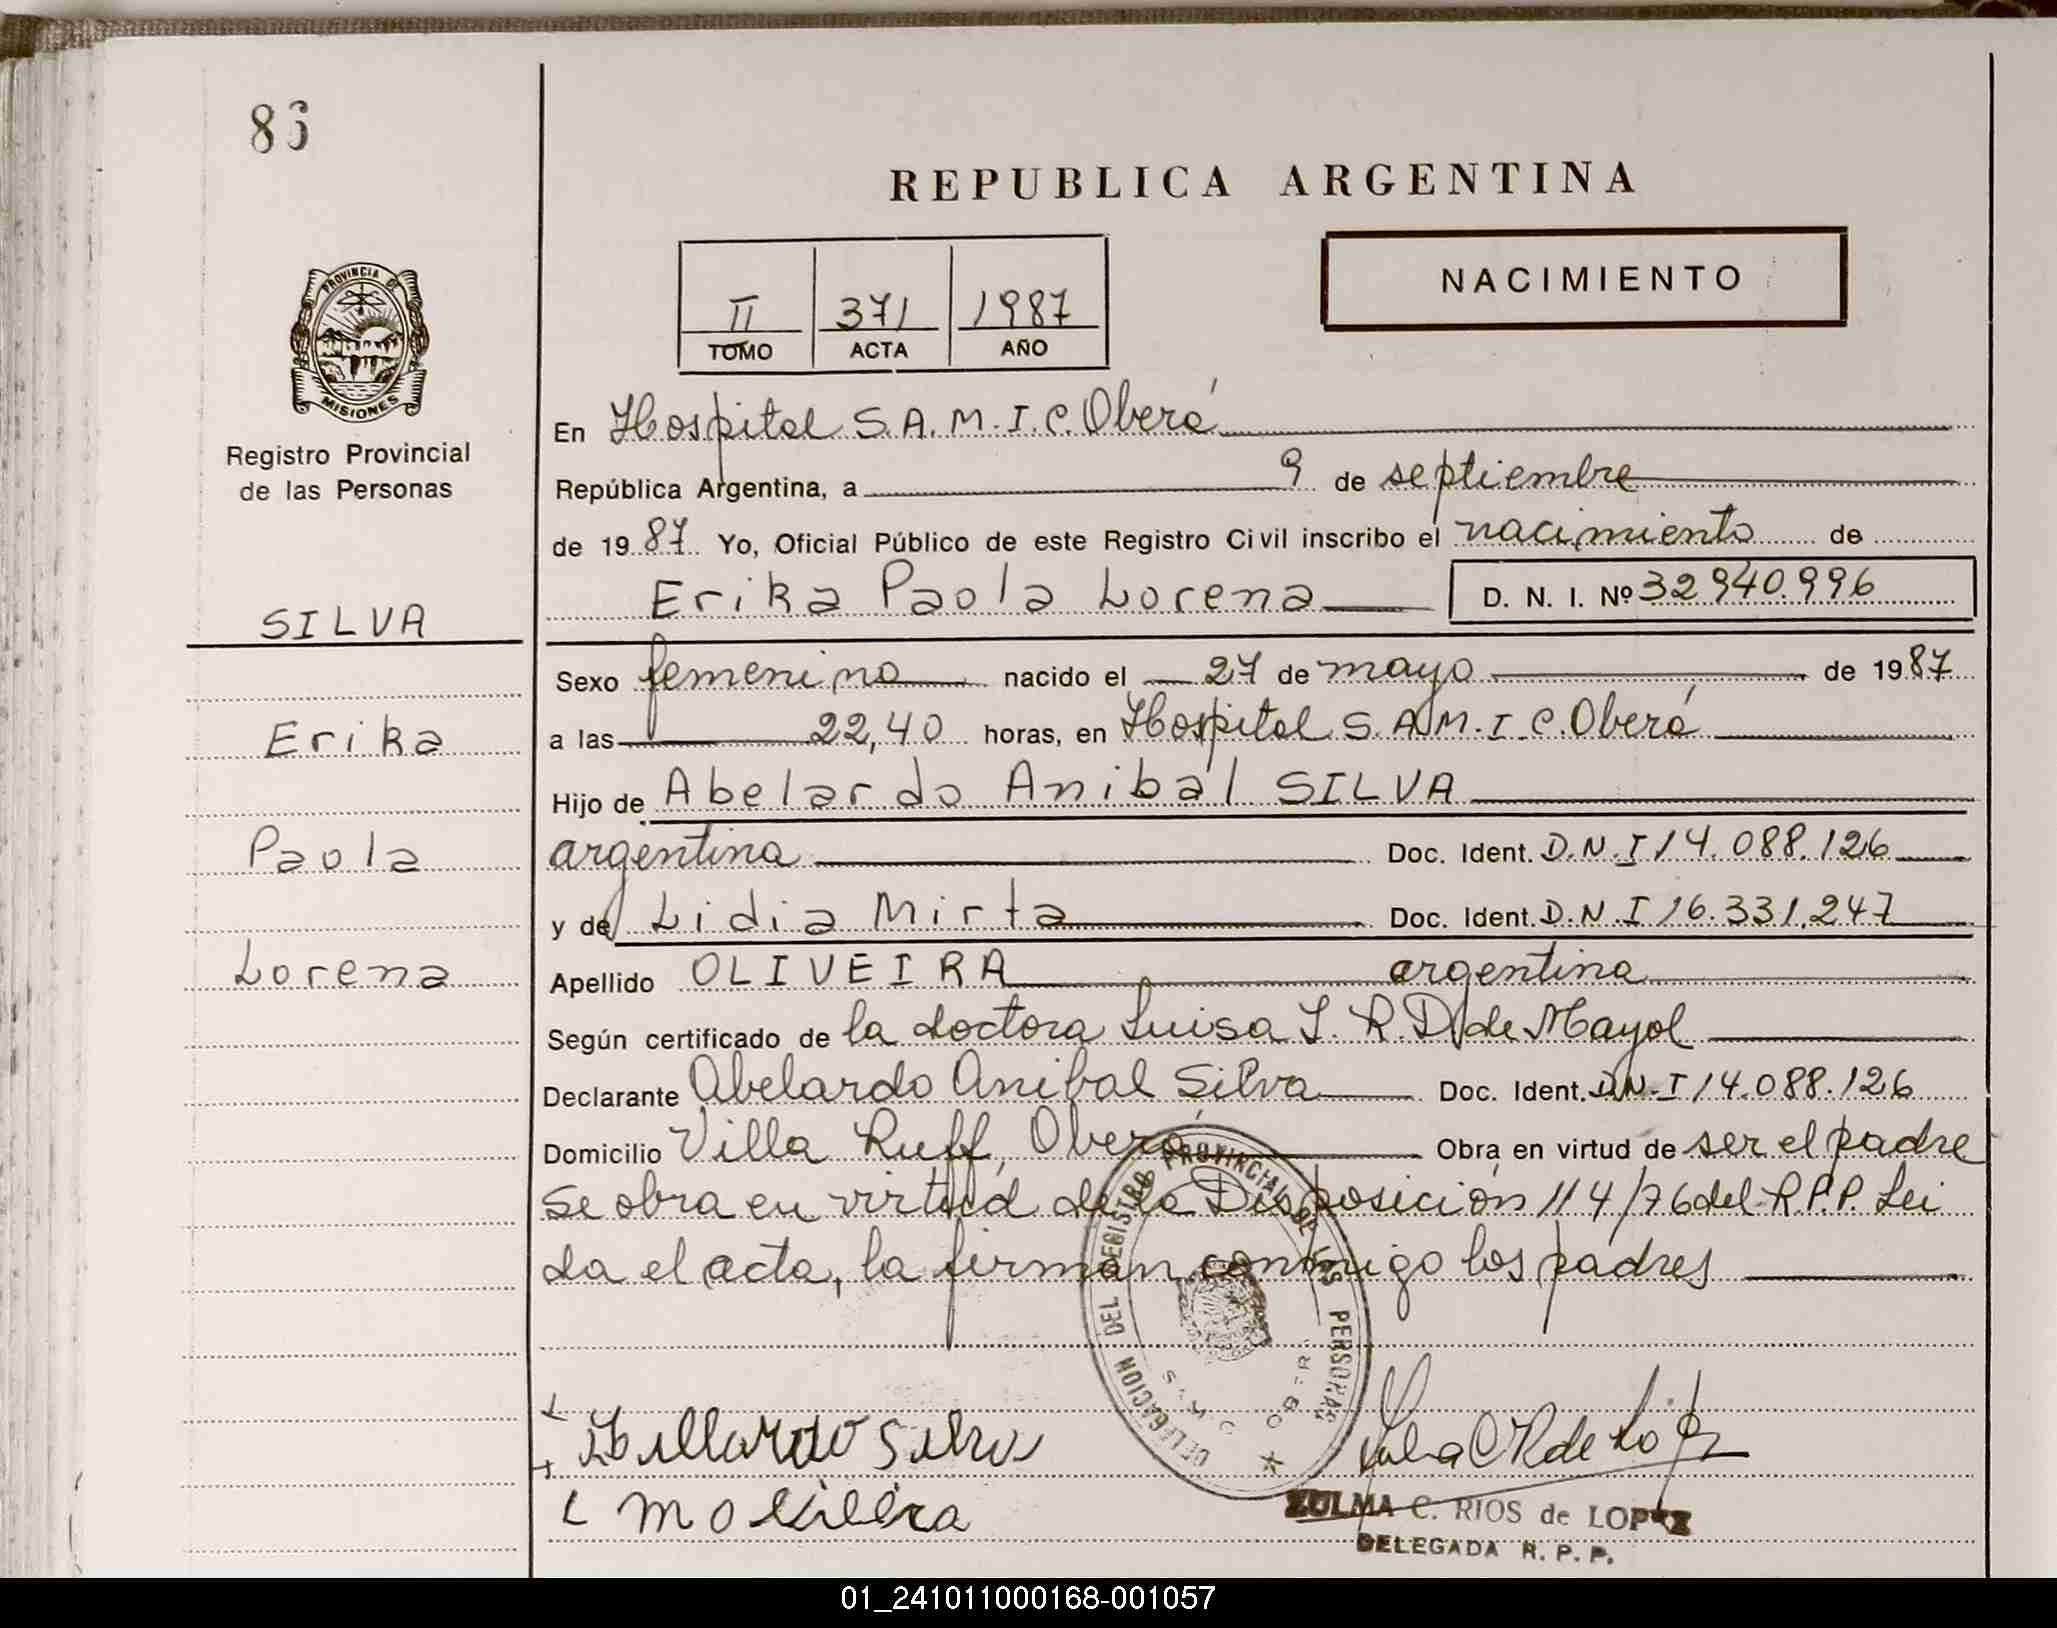 86
REPUBLICA ARGENTINA
NACIMIENTO
II 371 1987
TOMO ACTA AÑO
PROVINCIA DE
MISIONES
Registro Provincial
de las Personas
SILVA
Erika
Paola
Lorena
En Hospital S.A.M.I.C. Oberá
República Argentina, a 9 de septiembre
de 1987 Yo, Oficial Público de este Registro Civil inscribo el nacimiento de
Erika Paola Lorena D. N. I. Nº 32.940.996
Sexo femenino nacido el 27 de mayo de 1987
a las 22,40 horas, en Hospital S.A.M.I.C. Oberá
Hijo de Abelardo Anibal SILVA
argentina Doc. Ident. D.N.I 14.088.126
y de Lidia Mirta Doc. Ident. D.N.I 16.331.247
Apellido OLIVEIRA argentina
Según certificado de la doctora Luisa I. R. D. de Mayol
Declarante Abelardo Anibal Silva Doc. Ident. D.N.I 14.088.126
Domicilio Villa Ruff, Oberá Obra en virtud de ser el padre
se obra en virtud de la Disposición 114/76 del R.P.P. Lei
da el acta, la firman conmigo los padres
DELEGACION DEL REGISTRO PROVINCIAL DE LAS PERSONAS
S.A.M.I.C. OBERA
ZULMA C. RIOS de LOPEZ
DELEGADA R. P. P.
01_241011000168-001057